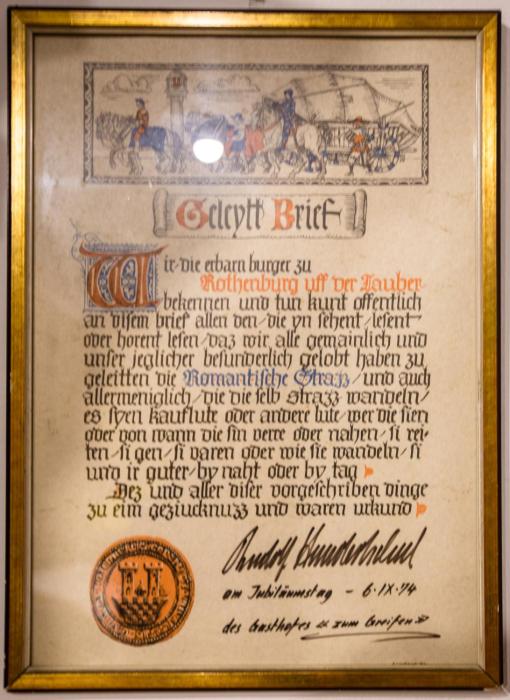 Geleytt Brief
Wir die erbarn burger zu
Rothenburg uff der Tauber
bekennen und tun kunt offentlich
an disem brief allen den die yn sehent lesent
oder horent lesen daz wir alle gemainlich und
unser jeglicher besunderlich gelobt haben zu
geleitten die Romantische Strazz und auch
allermeniglich die die selb Strazz wandeln
es syen kauflute oder andere lute wer die sien
oder von wann die sin verre oder nahen si rei-
ten si gen si varen oder wie sie wandeln si
und ir guter by naht oder by tag
Dez und aller diser vorgeschriben dinge
zu eim geziucknuzz und waren urkund
Rudolf
am Jubiläumstag - 6.IX.74
des Gasthofes « zum Greifen »